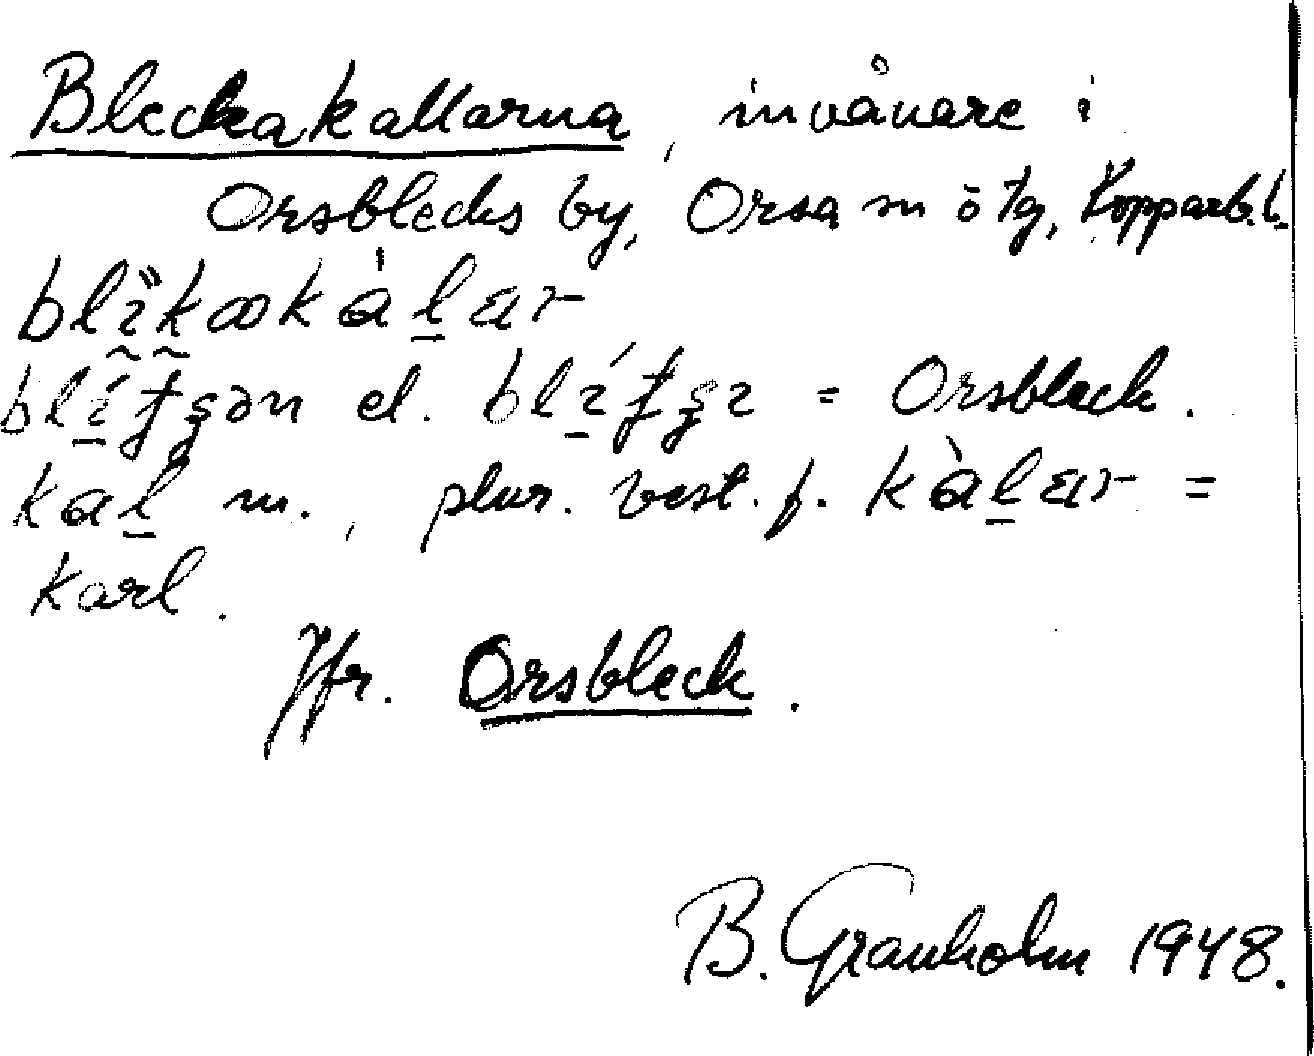 Bleckakallarna, invånare i
Orsblecks by, Orsa sn ö tg, Kopparb. l.
el. = Orsbleck.
kal m., plur. best. f. kàlar =
karl.
Jfr. Orsbleck.
B. Granholm 1948.